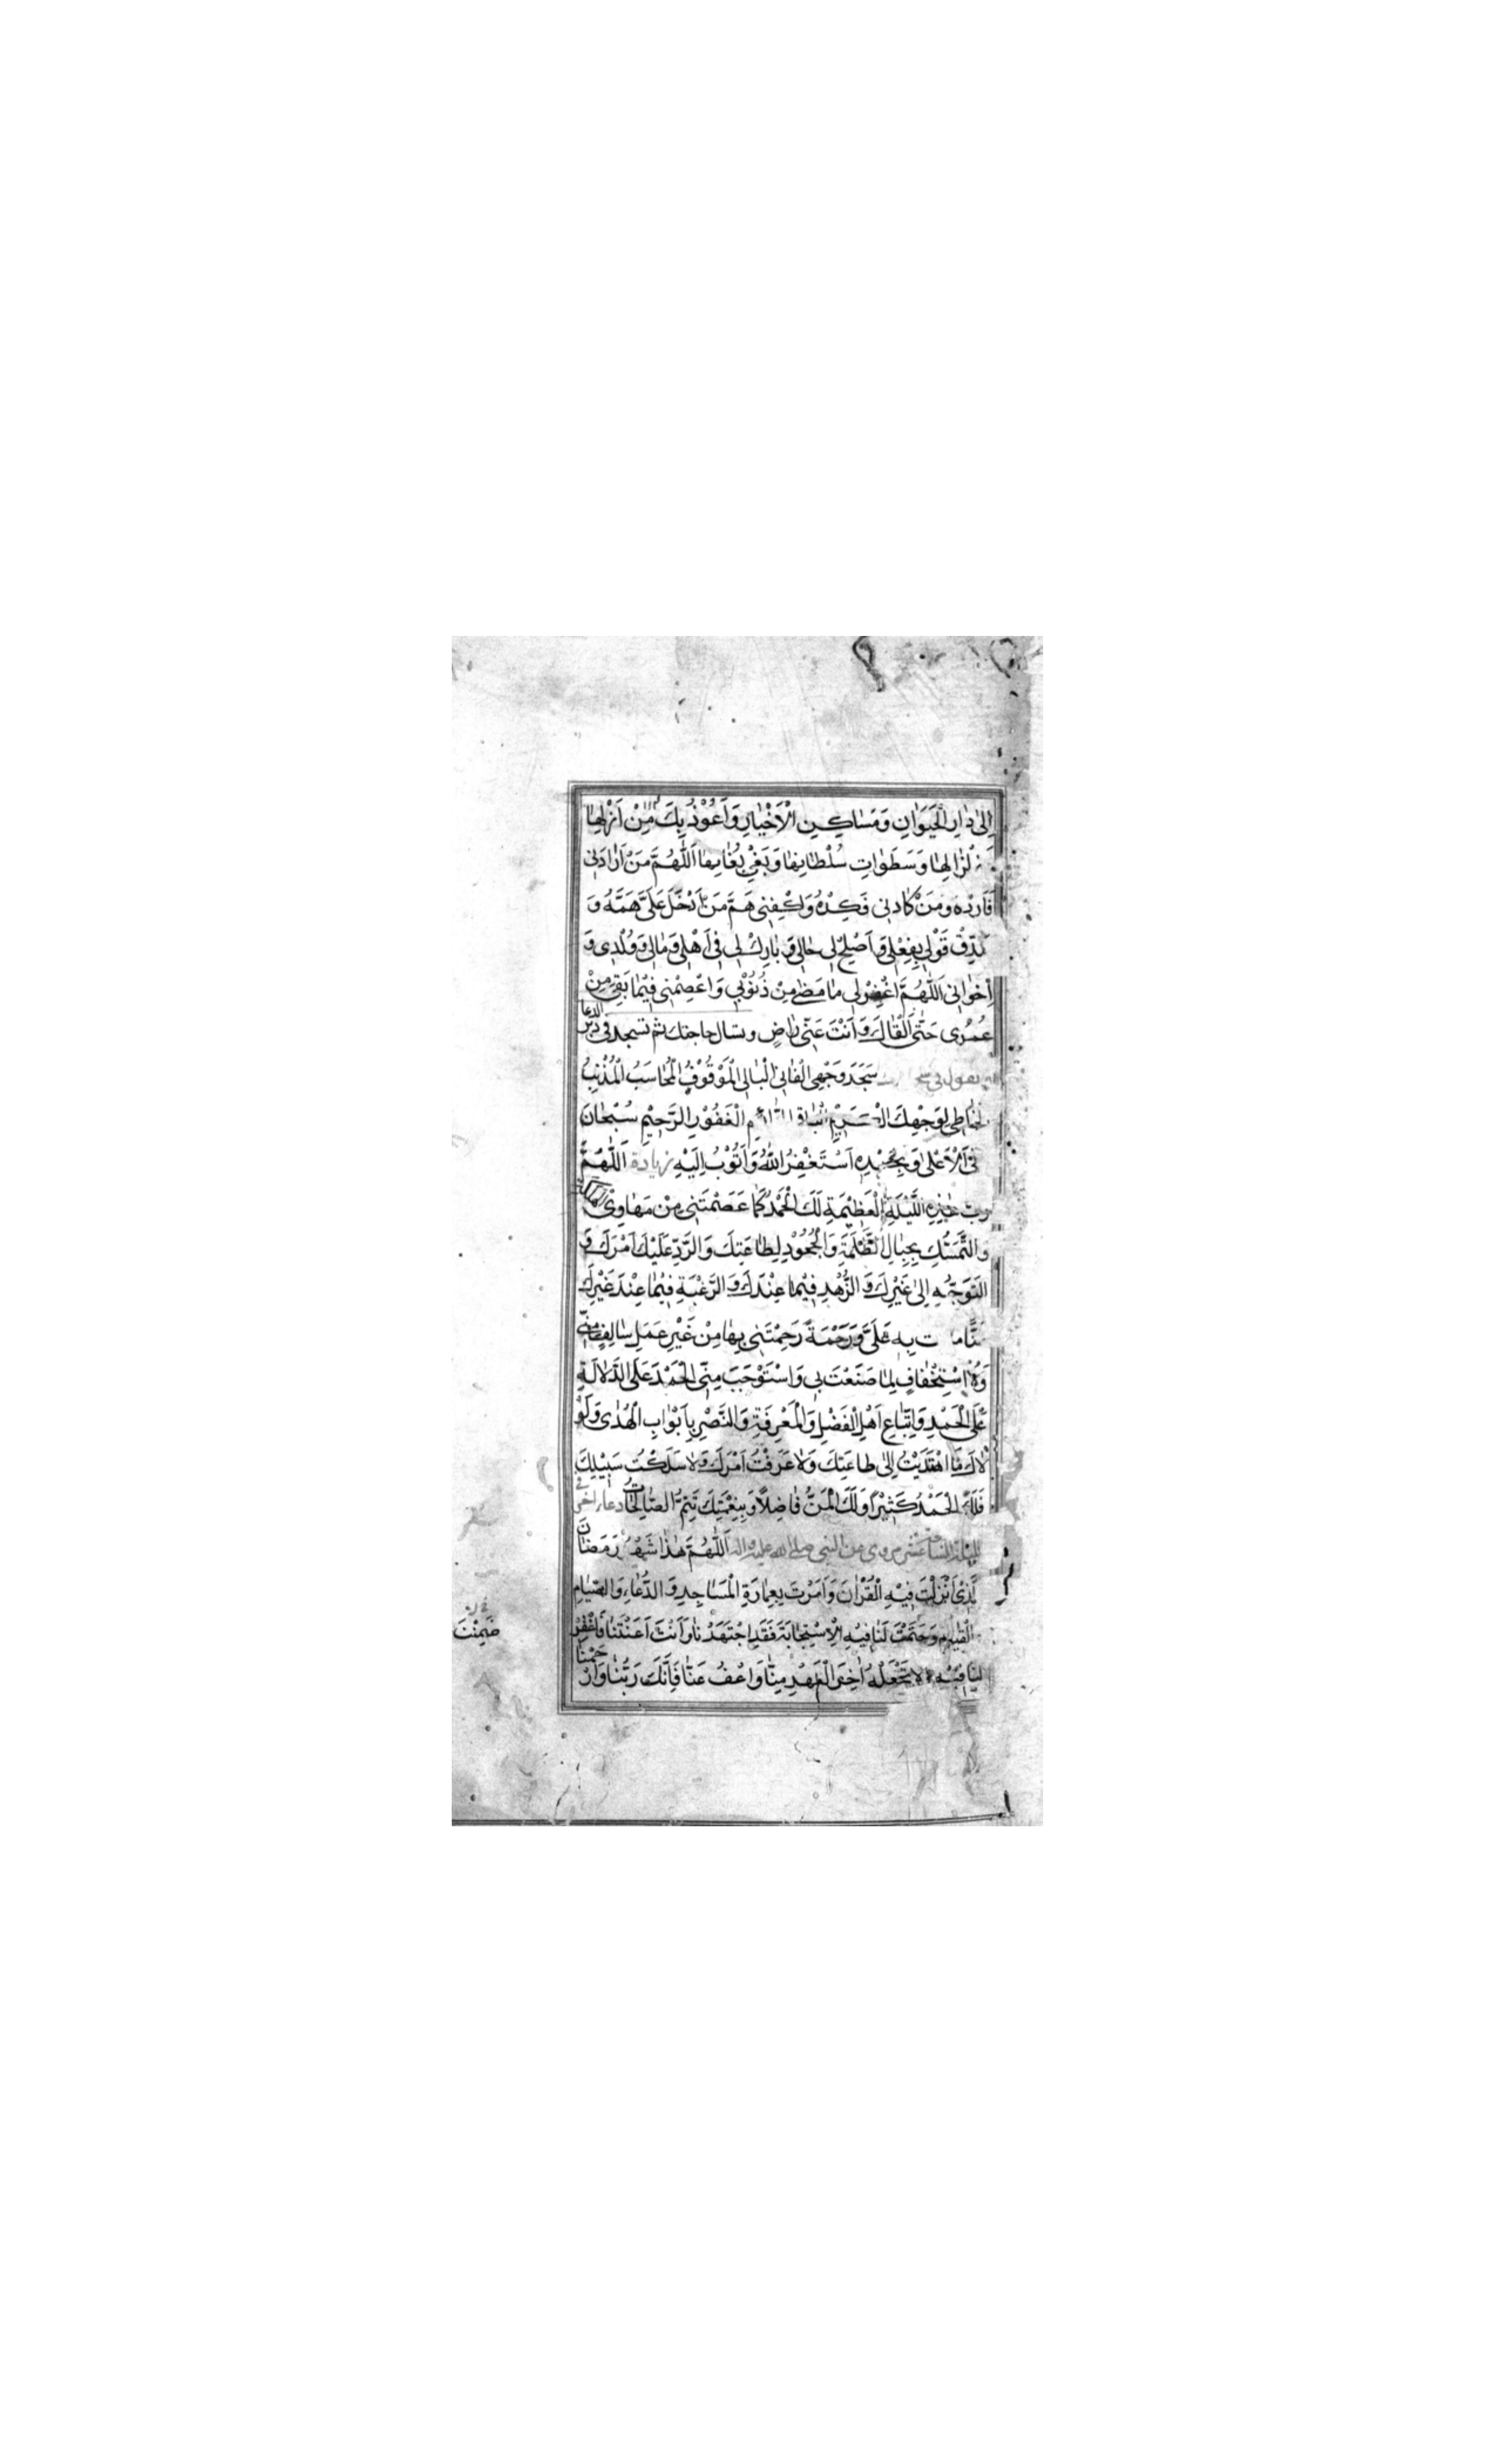 اِلىٰ دٰارِ الْحَيَوٰانِ وَمَسٰاكِينِ الْاَخْيٰارِ وَاَعُوْذُ بِكَ مِنْ اَزْلِهٰا
وَزِلْزٰالِهٰا وَسَطَوٰاتِ سُلْطٰانِهٰا وَبَغْيِ بُغٰاتِهٰا اَللّٰهُمَّ مَنْ اَرٰادَنِى
فَاَرِدْهُ وَمَنْ كٰادَنِى فَكِدْهُ وَاكْفِنِى هَمَّ مَنْ اَدْخَلَ عَلَىَّ هَمَّهُ وَ
صَدِّقْ قَوْلِى بِفِعْلِى وَاَصْلِحْ لِى حٰالِى وَبٰارِكْ لِى فِى اَهْلِى وَمٰالِى وَوُلْدِى وَ
اِخْوٰانِى اَللّٰهُمَّ اغْفِرْ لِى مٰا مَضٰى مِنْ ذُنُوْبِى وَاعْصِمْنِى فِيْمٰا بَقِىَ مِنْ
عُمُرِى حَتّٰى اَلْقٰاكَ وَاَنْتَ عَنِّى رٰاضٍ وتسال حاجتك ثم تسجد فى دبر الدعا
تقول فى سَجَدَ وَجْهِىَ الْفٰانِى الْبٰالِى الْمَوْقُوْفُ الْمُحٰاسَبُ الْمُذْنِبُ
الْخٰاطِى لِوَجْهِكَ الْكَرِيْمِ الْبٰاقِ الْغَفُوْرِ الرَّحِيْمِ سُبْحٰانَ
الْاَعْلىٰ وَبِحَمْدِهِ اَسْتَغْفِرُ اللّٰهَ وَاَتُوْبُ اِلَيْهِ زيادة اَللّٰهُمَّ
رَبَّ هٰذِهِ اللَّيْلَةِ الْعَظِيْمَةِ لَكَ الْحَمْدُ كَمٰا عَصَمْتَنِى مِنْ مَهٰاوِىْ الهلكة
وَالتَّمَسُّكِ بِحِبٰالِ الظَّلَمَةِ وَالْجُحُوْدِ لِطٰاعَتِكَ وَالرَّدِّ عَلَيْكَ اَمْرَكَ وَ
التَّوَجُّهِ اِلىٰ غَيْرِكَ وَالزُّهْدِ فِيْمٰا عِنْدَكَ وَالرَّغْبَةِ فِيْمٰا عِنْدَ غَيْرِكَ
بِهِ عَلَىَّ وَرَحْمَةً رَحِمْتَنِى بِهٰا مِنْ غَيْرِ عَمَلٍ سٰالِفٍ مِنِّى
اسْتِخْفٰافٍ لِمٰا صَنَعْتَ بِى وَاسْتَوْجَبَ مِنِّى الْحَمْدَ عَلَى الدَّلٰالَةِ
عَلَى الْحَمْدِ وَاتِّبٰاعِ اَهْلِ الْفَضْلِ وَالْمَعْرِفَةِ وَالنَّصْرِ بِاَبْوٰابِ الْهُدٰى وَلَوْ
لٰاكَ مَا اهْتَدَيْتُ اِلىٰ طٰاعَتِكَ وَلٰا عَرَفْتُ اَمْرَكَ وَلٰا سَلَكْتُ سَبِيْلَكَ
فَلَكَ الْحَمْدُ كَثِيْرًا وَلَكَ الْمَنُّ فٰاضِلًا وَبِنِعْمَتِكَ تَتِمُّ الصّٰالِحٰاتُ دعاء اخر فى
عشر مروى عن النبى صلى الله عليه واله اَللّٰهُمَّ هٰذٰا شَهْرُ رَمَضٰانَ
الَّذِى اَنْزَلْتَ فِيْهِ الْقُرْاٰنَ وَاَمَرْتَ بِعِمٰارَةِ الْمَسٰاجِدِ وَالدُّعٰاءِ وَالصِّيٰامِ
وَالْقِيٰامِ وَحَتَمْتَ لَنٰا فِيْهِ الْاِسْتِجٰابَةَ فَقَدِ اجْتَهَدْنٰا وَاَنْتَ اَعَنْتَنٰا فَاغْفِرْ
لَنٰا فِيْهِ وَلٰا تَجْعَلْهُ اٰخِرَ الْعَهْدِ مِنّٰا وَاعْفُ عَنّٰا فَاِنَّكَ رَبُّنٰا وَارْحَمْنٰا
ضَمِنْتَ